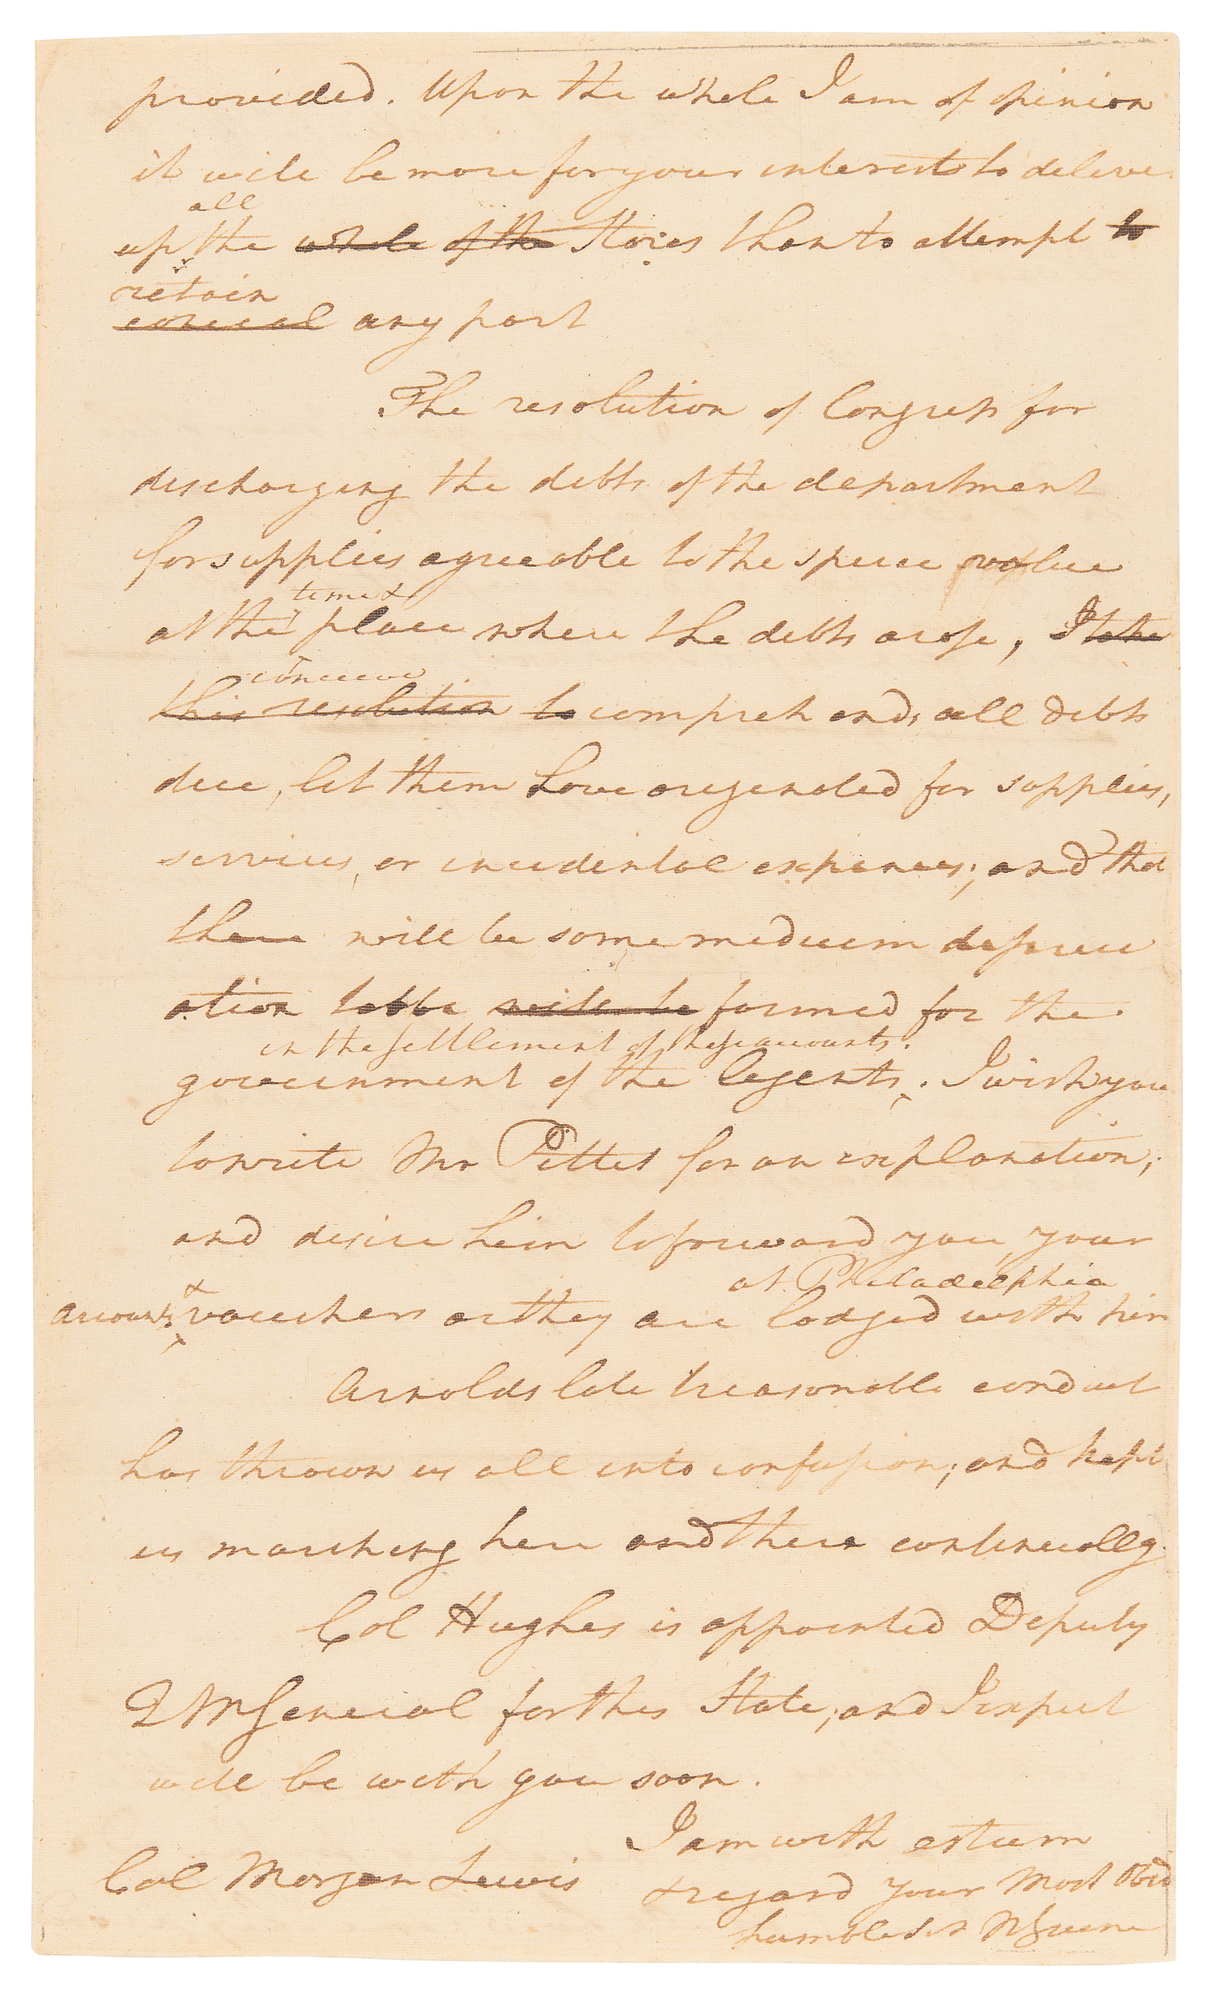 provided. Upon the whole I am of opinion
it will be more for your interest to deliver
all
up the whole of the Stores than to attempt to
retain
conceal any part
The resolution of Congress for
discharging the debts of the department
for supplies agreeable to the specie value
time &
at the place where the debts arose, I take
conceive
this resolution to comprehends all debts
due, let them have origenated for supplies,
services, or incidental expences; and that
there will be some medium depreci
ation table will be formed for the
in the settlement of these accounts.
government of the Agents. I wish you
to write Mr Pettet for an explanation;
and desire him to forward you your
at Philadelphia
accounts & vouchers as they are lodged with him
Arnolds late treasonable conduct
has thrown us all into confusion; and kept
us marching here and there continually.
Col Hughes is appointed Deputy
QMGeneral for this State; and I expect
will be with you soon.
I am with esteem
Col Morgan Lewis
& regard your Most Obed
humble Ser NGreene